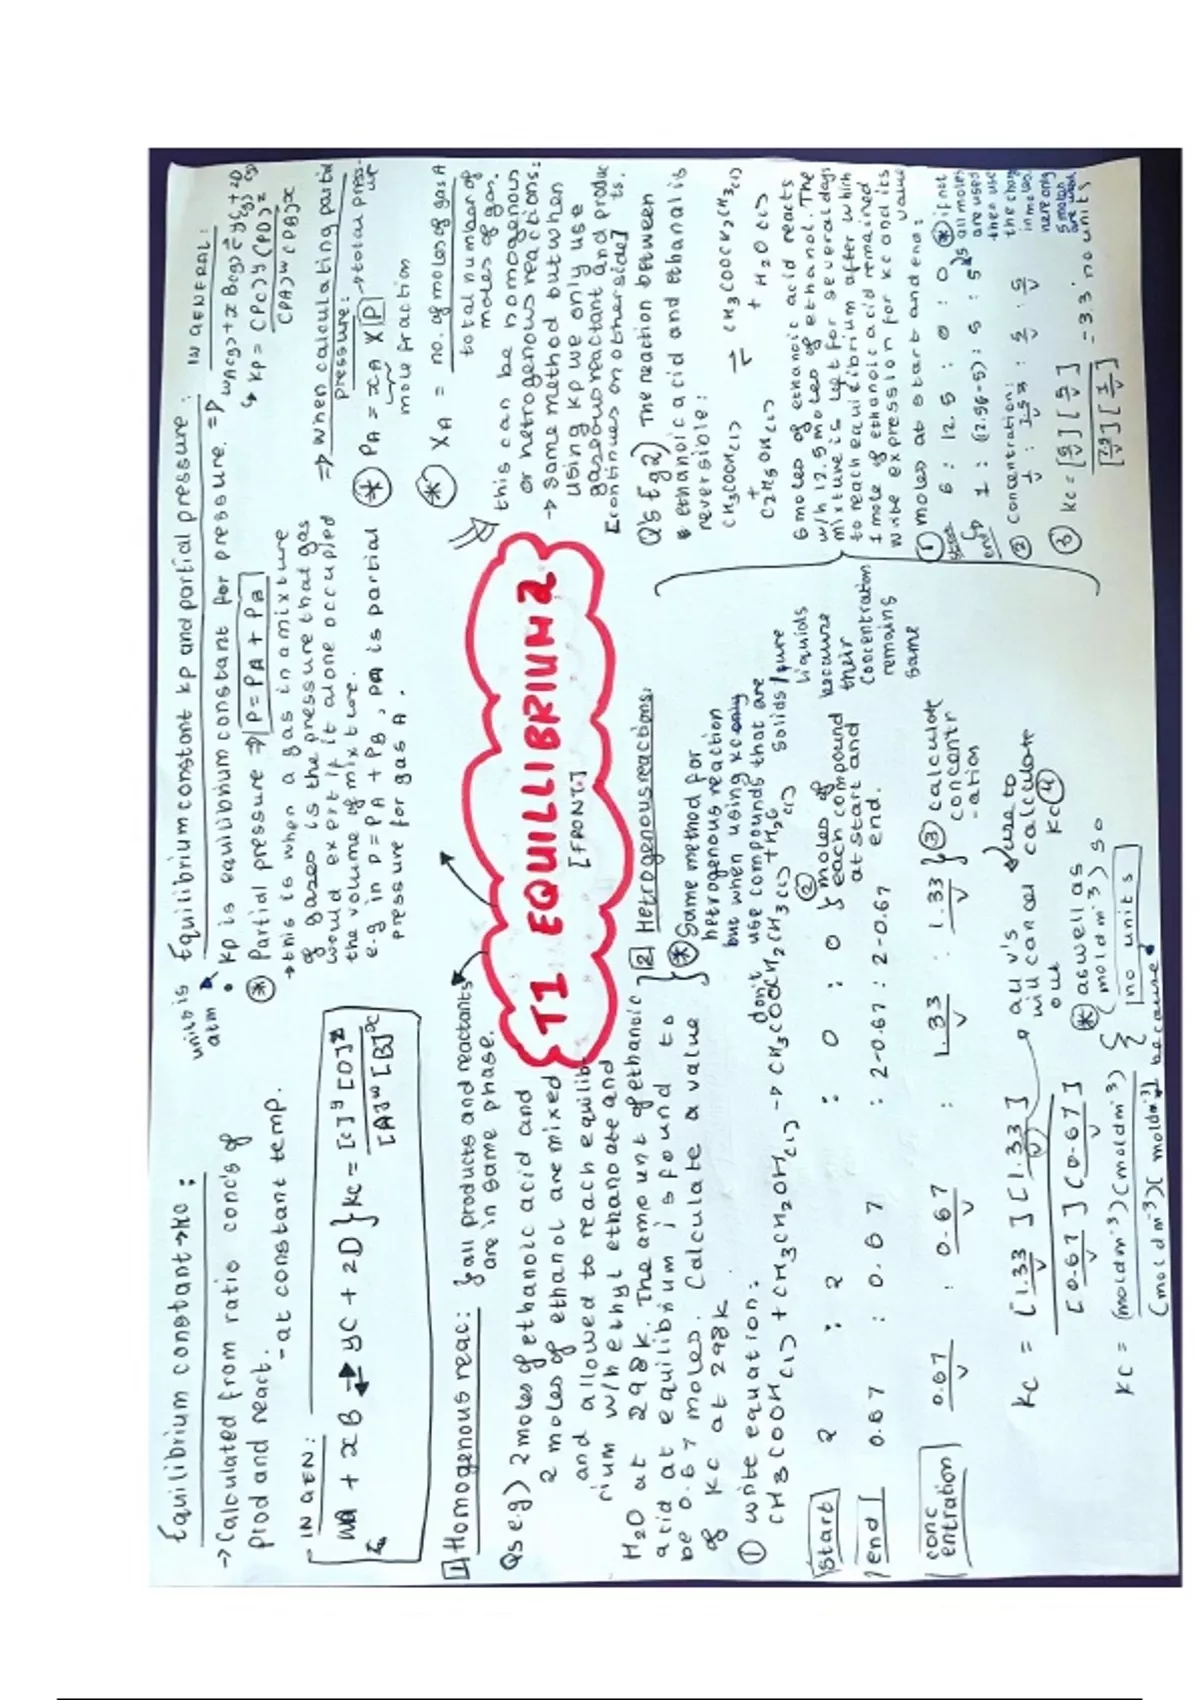 Equilibrium constant → Kc :
→ Calculated from ratio conc's of
prod and react.
- at constant temp.
- IN GEN :
wA + xB ⇌ yC + zD } Kc = [C]^y [D]^z
[A]^w [B]^x
1 Homogenous reac: { all products and reactants
are in same phase.
Qs e.g) 2 moles of ethanoic acid and
2 moles of ethanol are mixed
and allowed to reach equilib
rium w/h ethyl ethanoate and
H2O at 298K. The amount of ethanoic
acid at equilibrium is found to
be 0.67 moles. Calculate a value
of Kc at 298K
① write equation:
CH3COOH(l) + CH3CH2OH(l) → CH3COOCH2CH3(l) + H2O(l)
start 2 : 2 : 0 : 0 } ② moles of
each compound
at start and
end.
end 0.67 : 0.67 : 2-0.67 : 2-0.67
conc
entration
0.67/V : 0.67/V : 1.33/V : 1.33/V } ③ calculate
concentr
-ation
Kc = [1.33/V] [1.33/V]
[0.67/V] [0.67/V]
all V's
will cancel
out
use to
calculate
Kc ④
Kc = (moldm⁻³)(moldm⁻³)
(moldm⁻³)(moldm⁻³)
* aswell as
(moldm⁻³) so
no units
because
units is
atm
Equilibrium constant Kp and partial pressure :
• Kp is equilibrium constant for pressure. ⇒
* Partial pressure ⇒ P = PA + PB
→ this is when a gas in a mixture
of gases is the pressure that gas
would exert if it alone occupied
the volume of mixture.
e.g in P = PA + PB, PA is partial
pressure for gas A.
IN GENERAL :
wA(g) + xB(g) ⇌ yC(g) + zD(g)
↳ Kp = (PC)^y (PD)^z
(PA)^w (PB)^x
⇒ when calculating partial
pressure:
* PA = xA X P → total press
ure
mole fraction
* XA = no. of moles of gas A
total number of
moles of gas.
this can be homogenous
or hetrogenous reactions:
→ same method but when
using Kp we only use
gaseous reactant and produc
[continues on other side] ts.
T1 EQUILLIBRIUM 2
[FRONT]
2 Hetrogenousreactions:
* Same method for
hetrogenous reaction
but when using Kc only
don't use compounds that are
solids/pure
liquids
because
their
concentration
remains
same
Q's Eg2) The reaction between
ethanoic acid and ethanal is
reversible:
CH3COOH(l) ⇌ CH3COOCH2CH3(l)
+ +
C2H5OH(l) H2O(l)
6 moles of ethanoic acid reacts
w/h 12.5 moles of ethanol. The
mixture is left for several days
to reach equilibrium after which
1 mole of ethanoic acid remained
write expression for Kc and its
value
① moles at start and end:
start 6 : 12.5 : 0 : 0
end 1 : (12.5-5) : 5 : 5
* if not
all moles
are used
then use
the chang
in moles.
here only
5 moles
are used
② Concentration:
1/V : 7.5/V : 5/V : 5/V
③ Kc = [5/V] [5/V]
[7.5/V] [1/V]
= 3.3 . no units